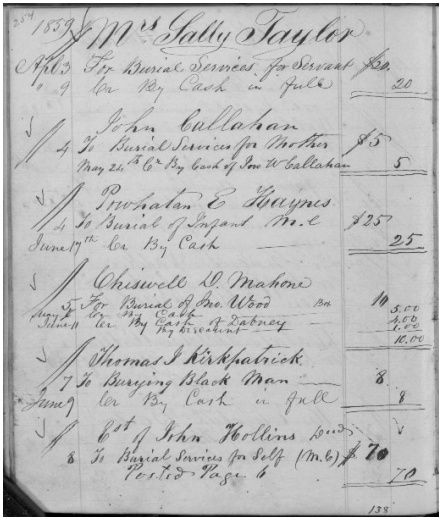 254
1859 Mrs Sally Taylor
Apl 3 For Burial Services for Servant $20.
" 9 Cr By Cash in full 20
John Callahan
4 To Burial Services for Mother $5
May 24th Cr By Cash of Jno W Callahan 5
Powhatan E Haynes
4 To Burial of Infant M.C $25
June 17th Cr By Cash 25
Chiswell D. Mahone
5 For Burial of Jno. Wood 10
Cr By Cash 5.00
June 11 Cr By Cash of Dabney 4.00
By Discount 1.00
10.00
Thomas J Kirkpatrick
7 To Burying Black Man 8
June 9 Cr By Cash in full 8
Est of John Hollins Decd
8 To Burial Services for Self (M.C) $70
Posted Page 6 70
138